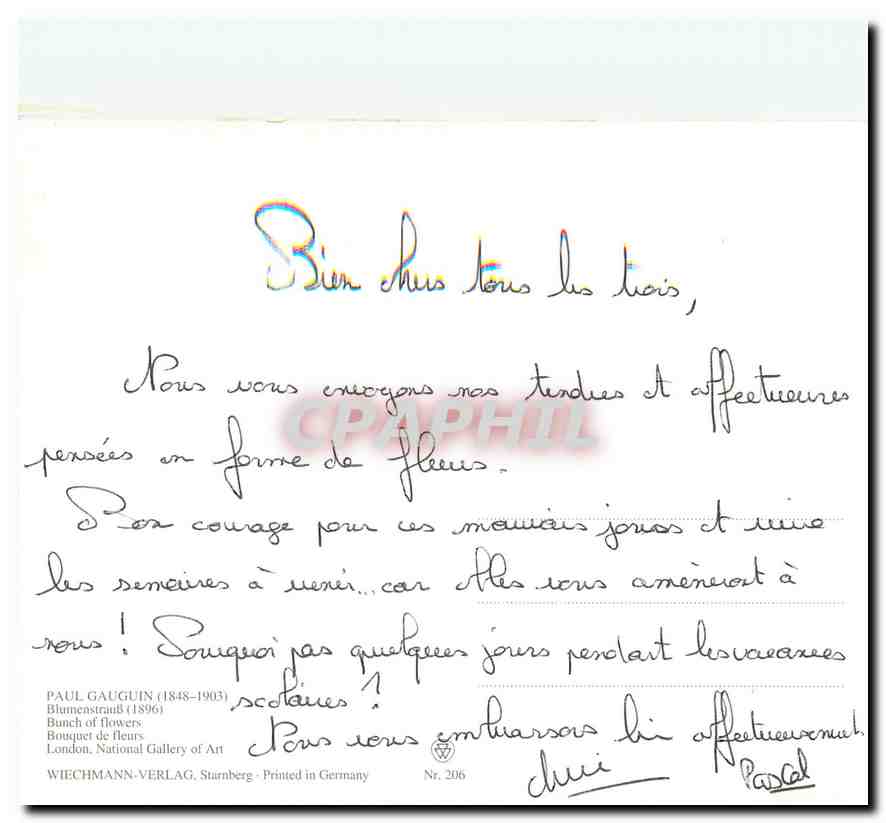 Bien chers tous les trois,
Nous vous envoyons nos tendres et affectueuses
CPAPHIL
pensées en forme de fleurs.
Bon courage pour ces mauvais jours et vive
les semaines à venir... car elles vous amèneront à
nous ! Pourquoi pas quelques jours pendant les vacances
scolaires ?
Nous vous embrassons bien affectueusement.
Pascal
PAUL GAUGUIN (1848–1903)
Blumenstrauß (1896)
Bunch of flowers
Bouquet de fleurs
London, National Gallery of Art
WIECHMANN-VERLAG, Starnberg · Printed in Germany
Nr. 206